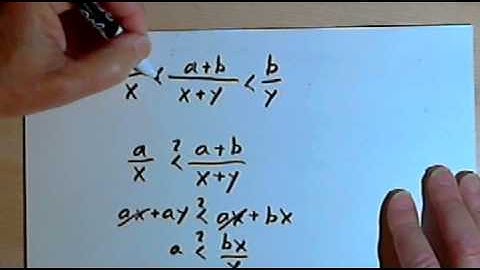 /x < (a+b)/(x+y) < b/y
a/x ?< (a+b)/(x+y)
ax+ay ?< ax+bx
a ?< bx/y